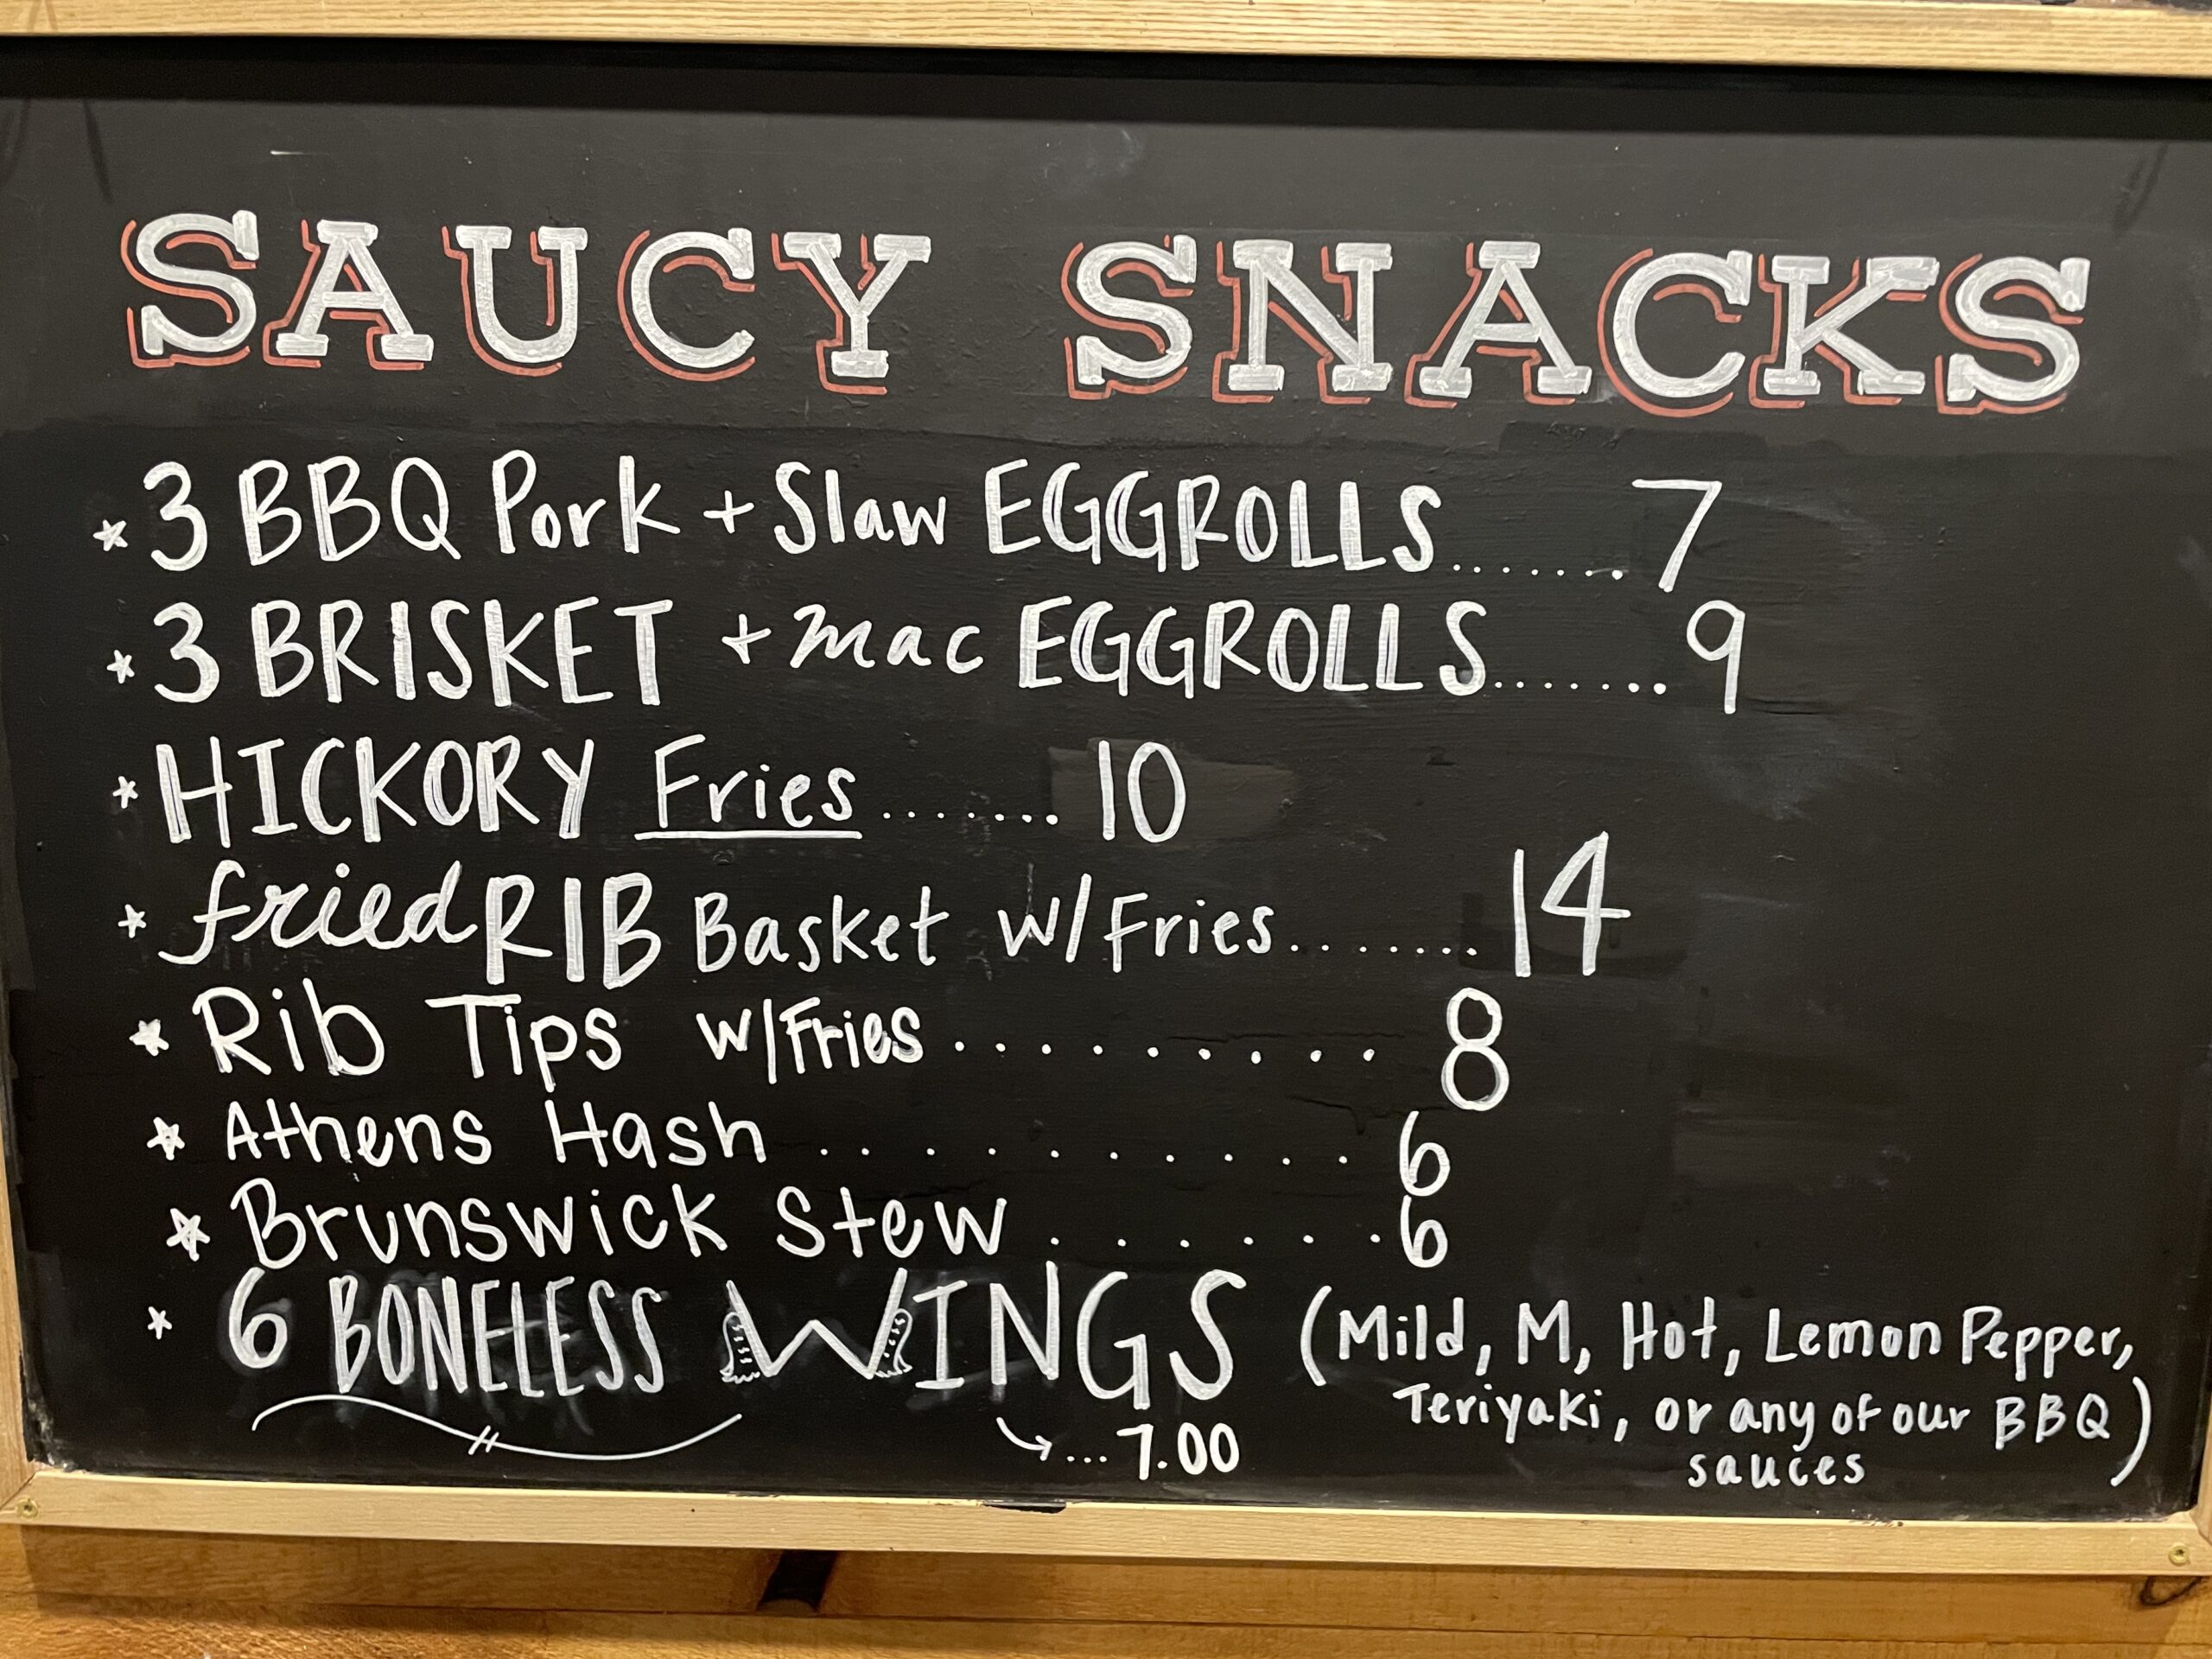 SAUCY SNACKS
* 3 BBQ Pork + Slaw EGGROLLS....... 7
* 3 BRISKET + mac EGGROLLS....... 9
* HICKORY Fries....... 10
* fried RIB Basket w/Fries....... 14
* Rib Tips w/Fries.......... 8
* Athens Hash.......... 6
* Brunswick Stew....... 6
* 6 BONELESS WINGS (Mild, M, Hot, Lemon Pepper,
Teriyaki, or any of our BBQ
... 7.00
sauces)